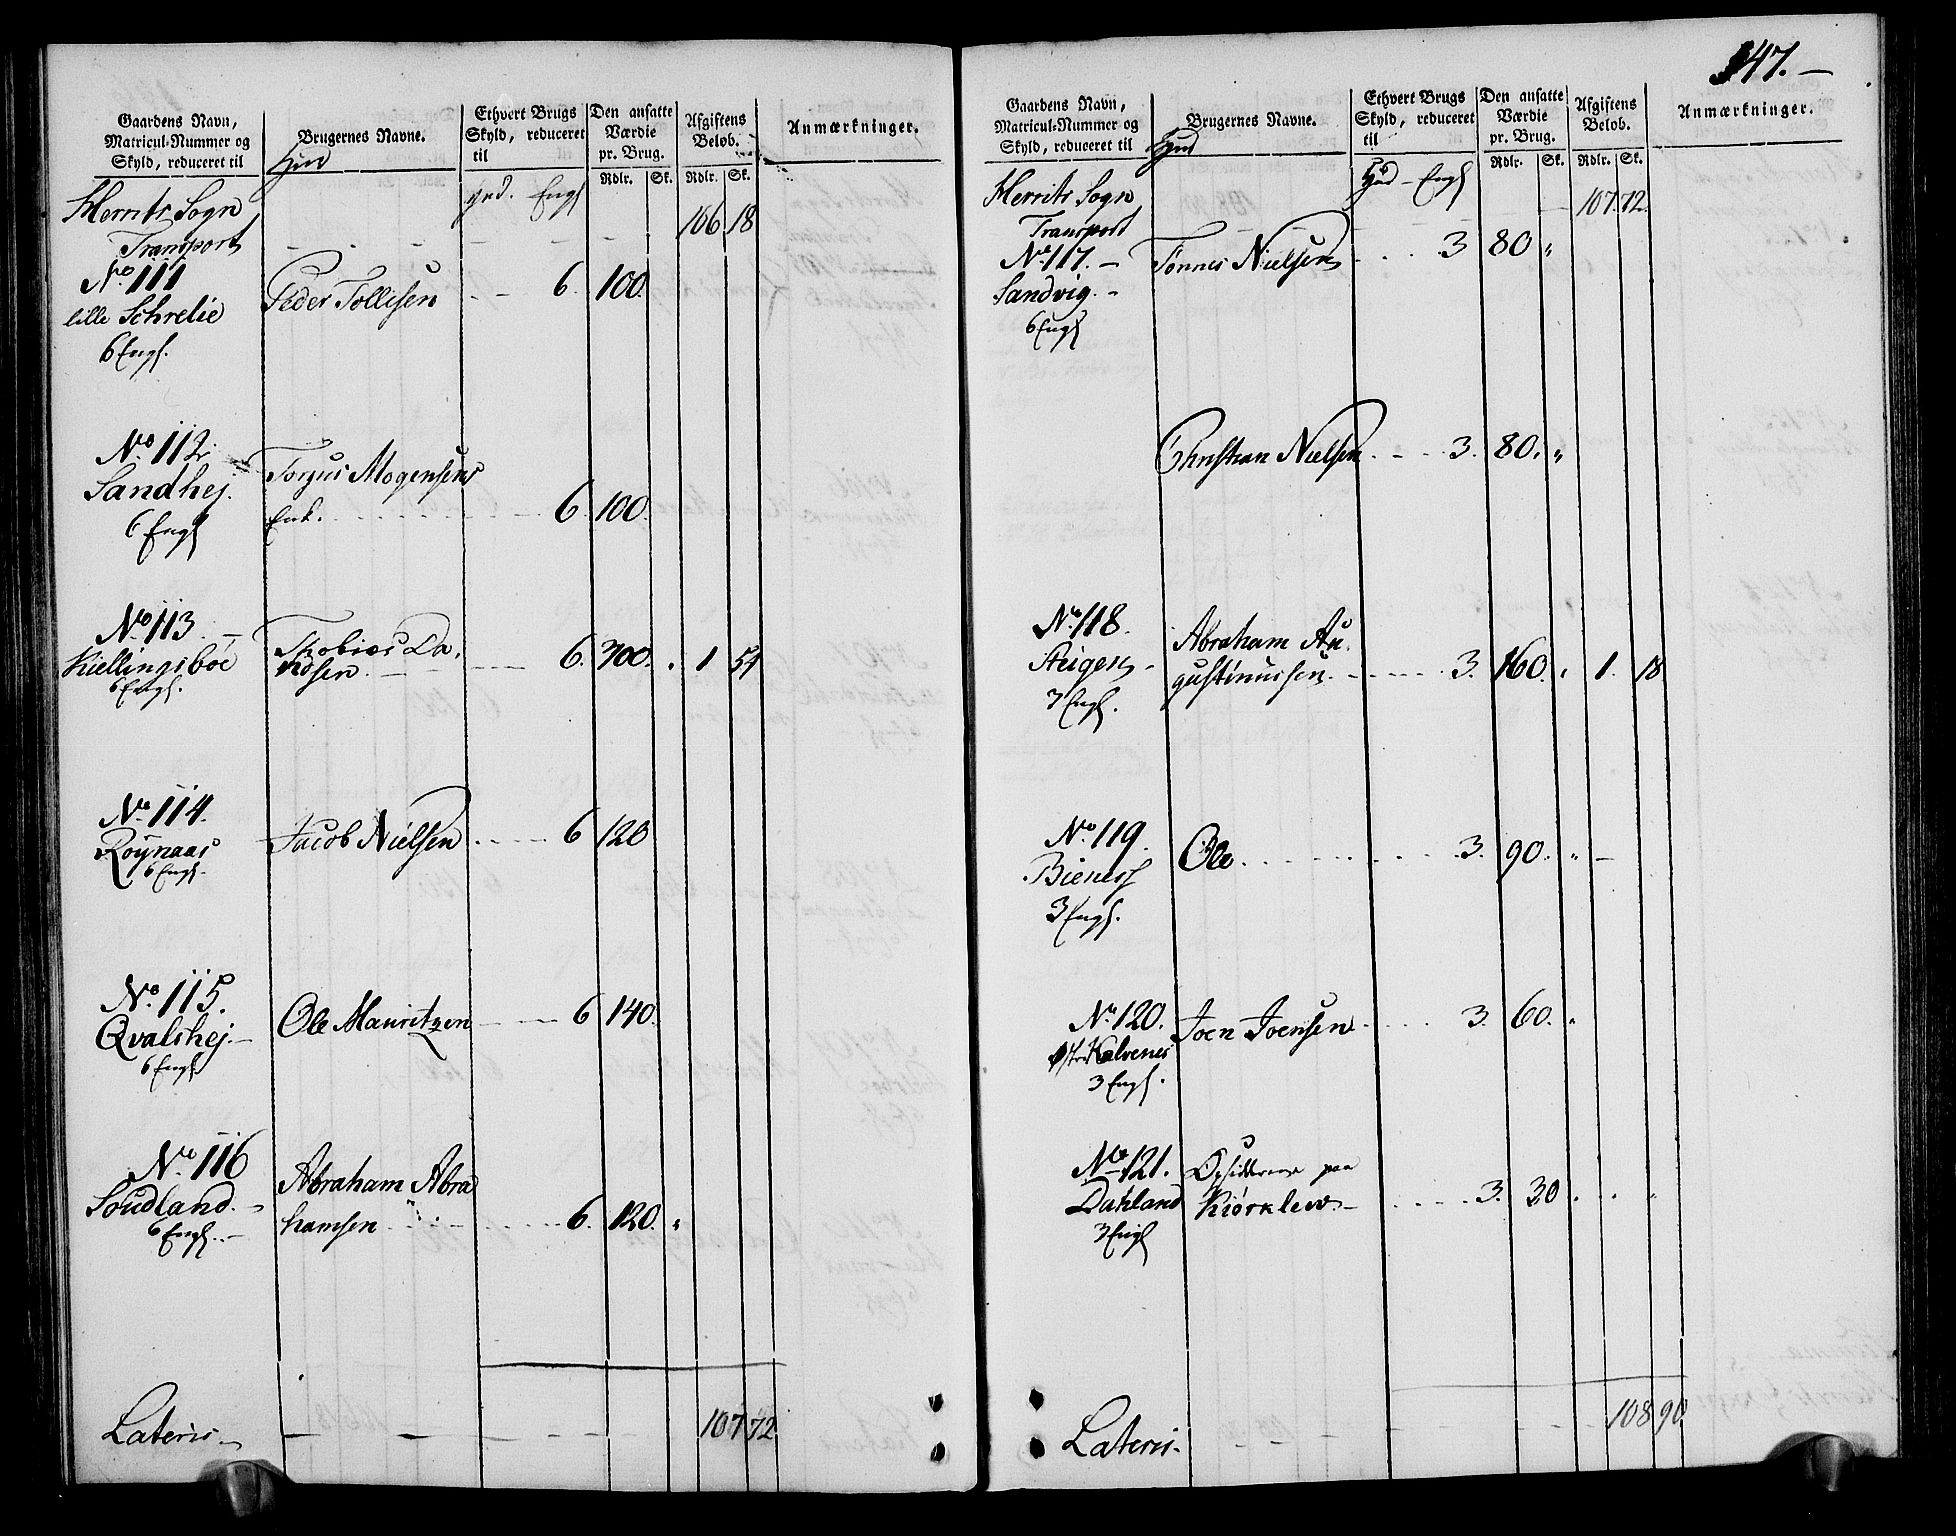 Gaardens Navn,
Matricul-Nummer og
Skyld, reduceret til
Brugernes Navne.
Ethvert Brugs
Skyld, reduceret
til
Den ansatte
Værdie
pr. Brug.
Rdlr. Sk.
Afgiftens
Beløb.
Rdlr. Sk.
Anmærkninger.
Hud
Engl
Herrits Sogn
Transport - - - - - 106 18
No 111
lille Schrelie
6 Engl.
Peder Tollisen - - 6. 100.
No 112.
Sandhej.
6 Engl
Torjus Mogensens
Enk. - - - 6. 100.
No 113.
Kiellingsböe
6 Engl.
Thobias Da,
vidsen. - - 6. 300. . 1 54
No 114.
Röÿnaas
6 Engl.
Jacob Nielsen - - 6 120
No 115.
Qvalshej.
6 Engl
Ole Mauritzen - - 6 140.
No 116
Soudland.
6 Engl.
Abraham Abra
hamsen - - - 6. 120. "
Lateris - - - - 107 72
147.
Gaardens Navn,
Matricul-Nummer og
Skyld, reduceret til
Brugernes Navne.
Ethvert Brugs
Skyld, reduceret
til
Den ansatte
Værdie
pr. Brug.
Rdlr. Sk.
Afgiftens
Beløb.
Rdlr. Sk.
Anmærkninger.
Hud
Hud - Engl
Herrits Sogn
Transport - - - - - 107. 72.
No 117.
Sandvig.
6 Engl
Tönnes Nielsen - - - 3 80 "
Christian Nielsen - - - 3. 80. "
No 118.
Steigen
3 Engl.
Abraham Au,
gustinussen - - - 3. 160. . 1. 18
No 119.
Bienes
3 Engl.
Ole - - - 3. 90. "
No 120.
Kalvenes
3 Engl.
Joen Joensen - - - 3. 60. "
No 121.
Dahland
3 Engl
Opsidderne paa
Kiörklew - - - 3. 30 . . "
Lateris - - - 108 90